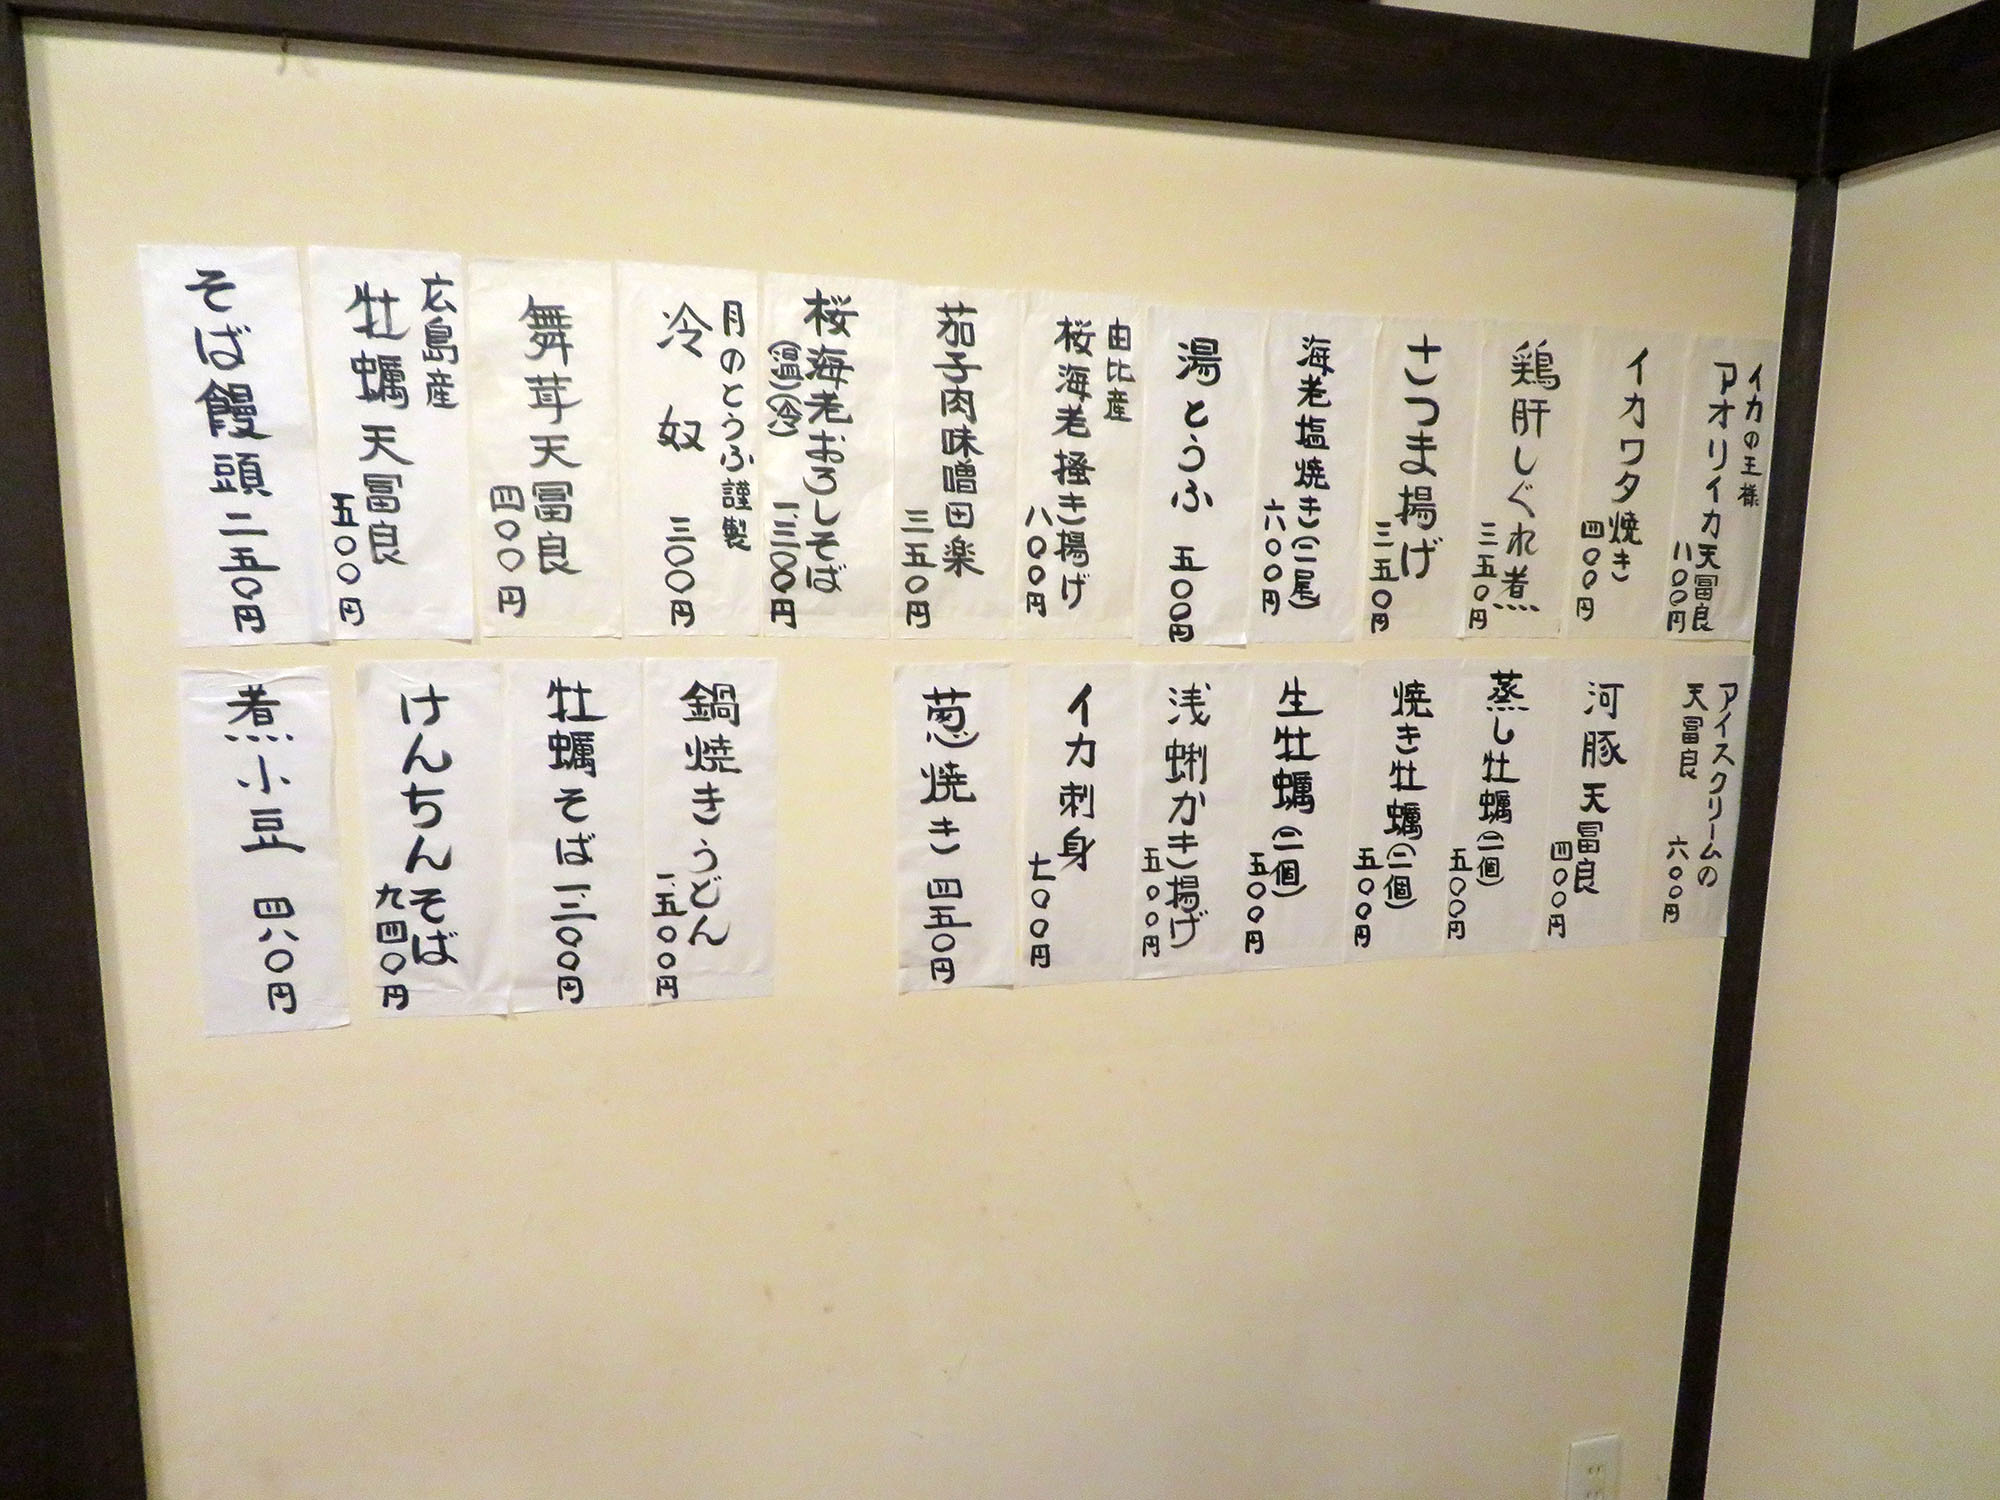 イカの王様
アオリイカ天冨良
八〇〇円
イカワタ焼き
四〇〇円
鶏肝しぐれ煮
三五〇円
さつま揚げ
三五〇円
海老塩焼き(二尾)
六〇〇円
湯とうふ 五〇〇円
由比産
桜海老掻き揚げ
八〇〇円
茄子肉味噌田楽
三五〇円
桜海老おろしそば
(温)(冷)
一、三〇〇円
月のとうふ謹製
冷奴
三〇〇円
舞茸天冨良
四〇〇円
広島産
牡蠣天冨良
五〇〇円
そば饅頭二五〇円
アイスクリームの
天冨良 六〇〇円
河豚天冨良
四〇〇円
蒸し牡蠣(二個)
五〇〇円
焼き牡蠣(二個)
五〇〇円
生牡蠣(二個)
五〇〇円
浅蜊かき揚げ
五〇〇円
イカ刺身
七〇〇円
葱焼き 四五〇円
鍋焼きうどん
一、五〇〇円
牡蠣そば一、三〇〇円
けんちんそば
九四〇円
煮小豆 四八〇円